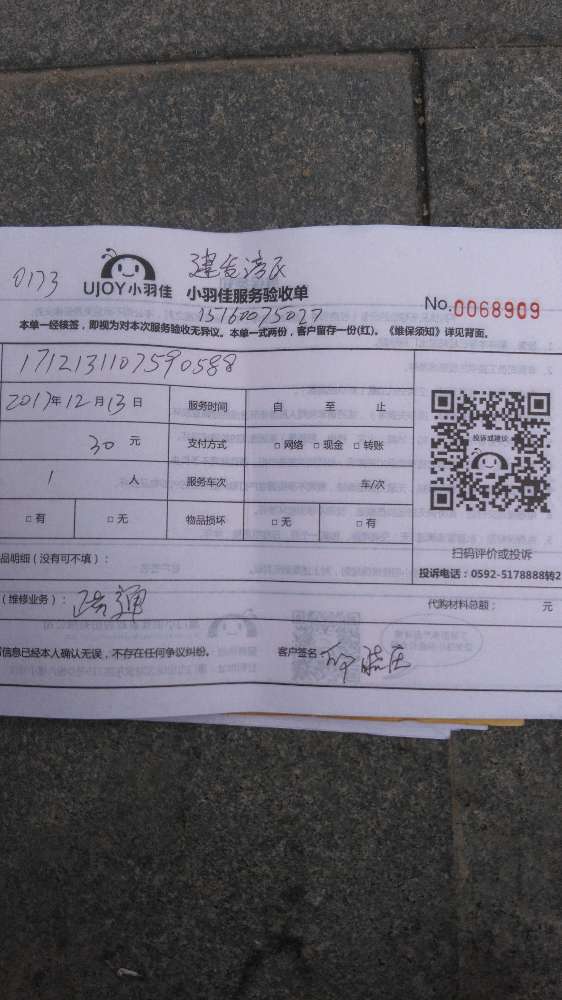 0173
UJOY小羽佳 小羽佳服务验收单
15160075027
No.0068909
本单一经核签，即视为对本次服务验收无异议。本单一式两份，客户留存一份(红)。《维保须知》详见背面。
1712131107590588
2017年12月13日 服务时间 自 至 止
30元 支付方式 □网络 □现金 □转账
1 人 服务车次 车/次
□有 □无 物品损坏 □无 □有
投诉或建议
扫码评价或投诉
投诉电话：0592-5178888转2
品明细（没有可不填）：
（维修业务）： 疏通 代购材料总额： 元
信息已经本人确认无误，不存在任何争议纠纷。 客户签名